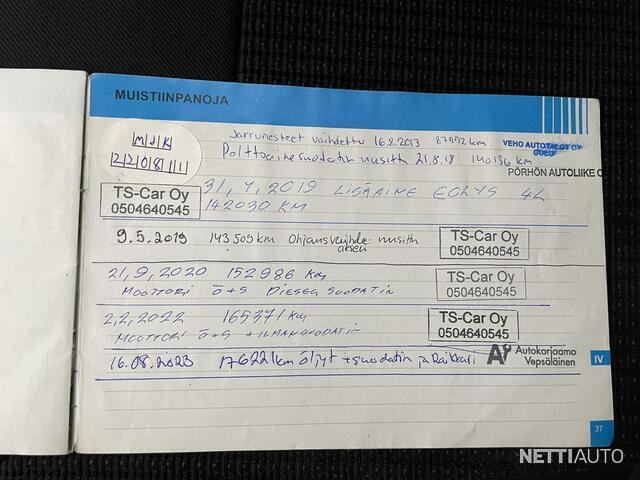 MUISTIINPANOJA
M J K
2 2 0 8 1 1
Jarrunesteet vaihdettu 16.2.2013 87992 km VEHO AUTOTALOT OY
OULU
Polttoainesuodatin uusittu 21.8.18 140136 km
PÖRHÖN AUTOLIIKE O
TS-Car Oy
0504640545
31,4,2019 LISÄAINE EOLYS 4L
142030 KM
9.5.2019 143509km Ohjausvaihde uusittu
TS-Car Oy
0504640545
21,9,2020 152986 Km
MOOTTORI Ö+S DIESEL SUODATIN
TS-Car Oy
0504640545
2,2,2022 165371 Km
MOOTTORI Ö+S +ILMANSUODATIN
TS-Car Oy
0504640545
16.08.2023 176221km Öljyt +suodatin ja Raikkari
Autokorjaamo
Vepsäläinen
IV
37
NETTIAUTO